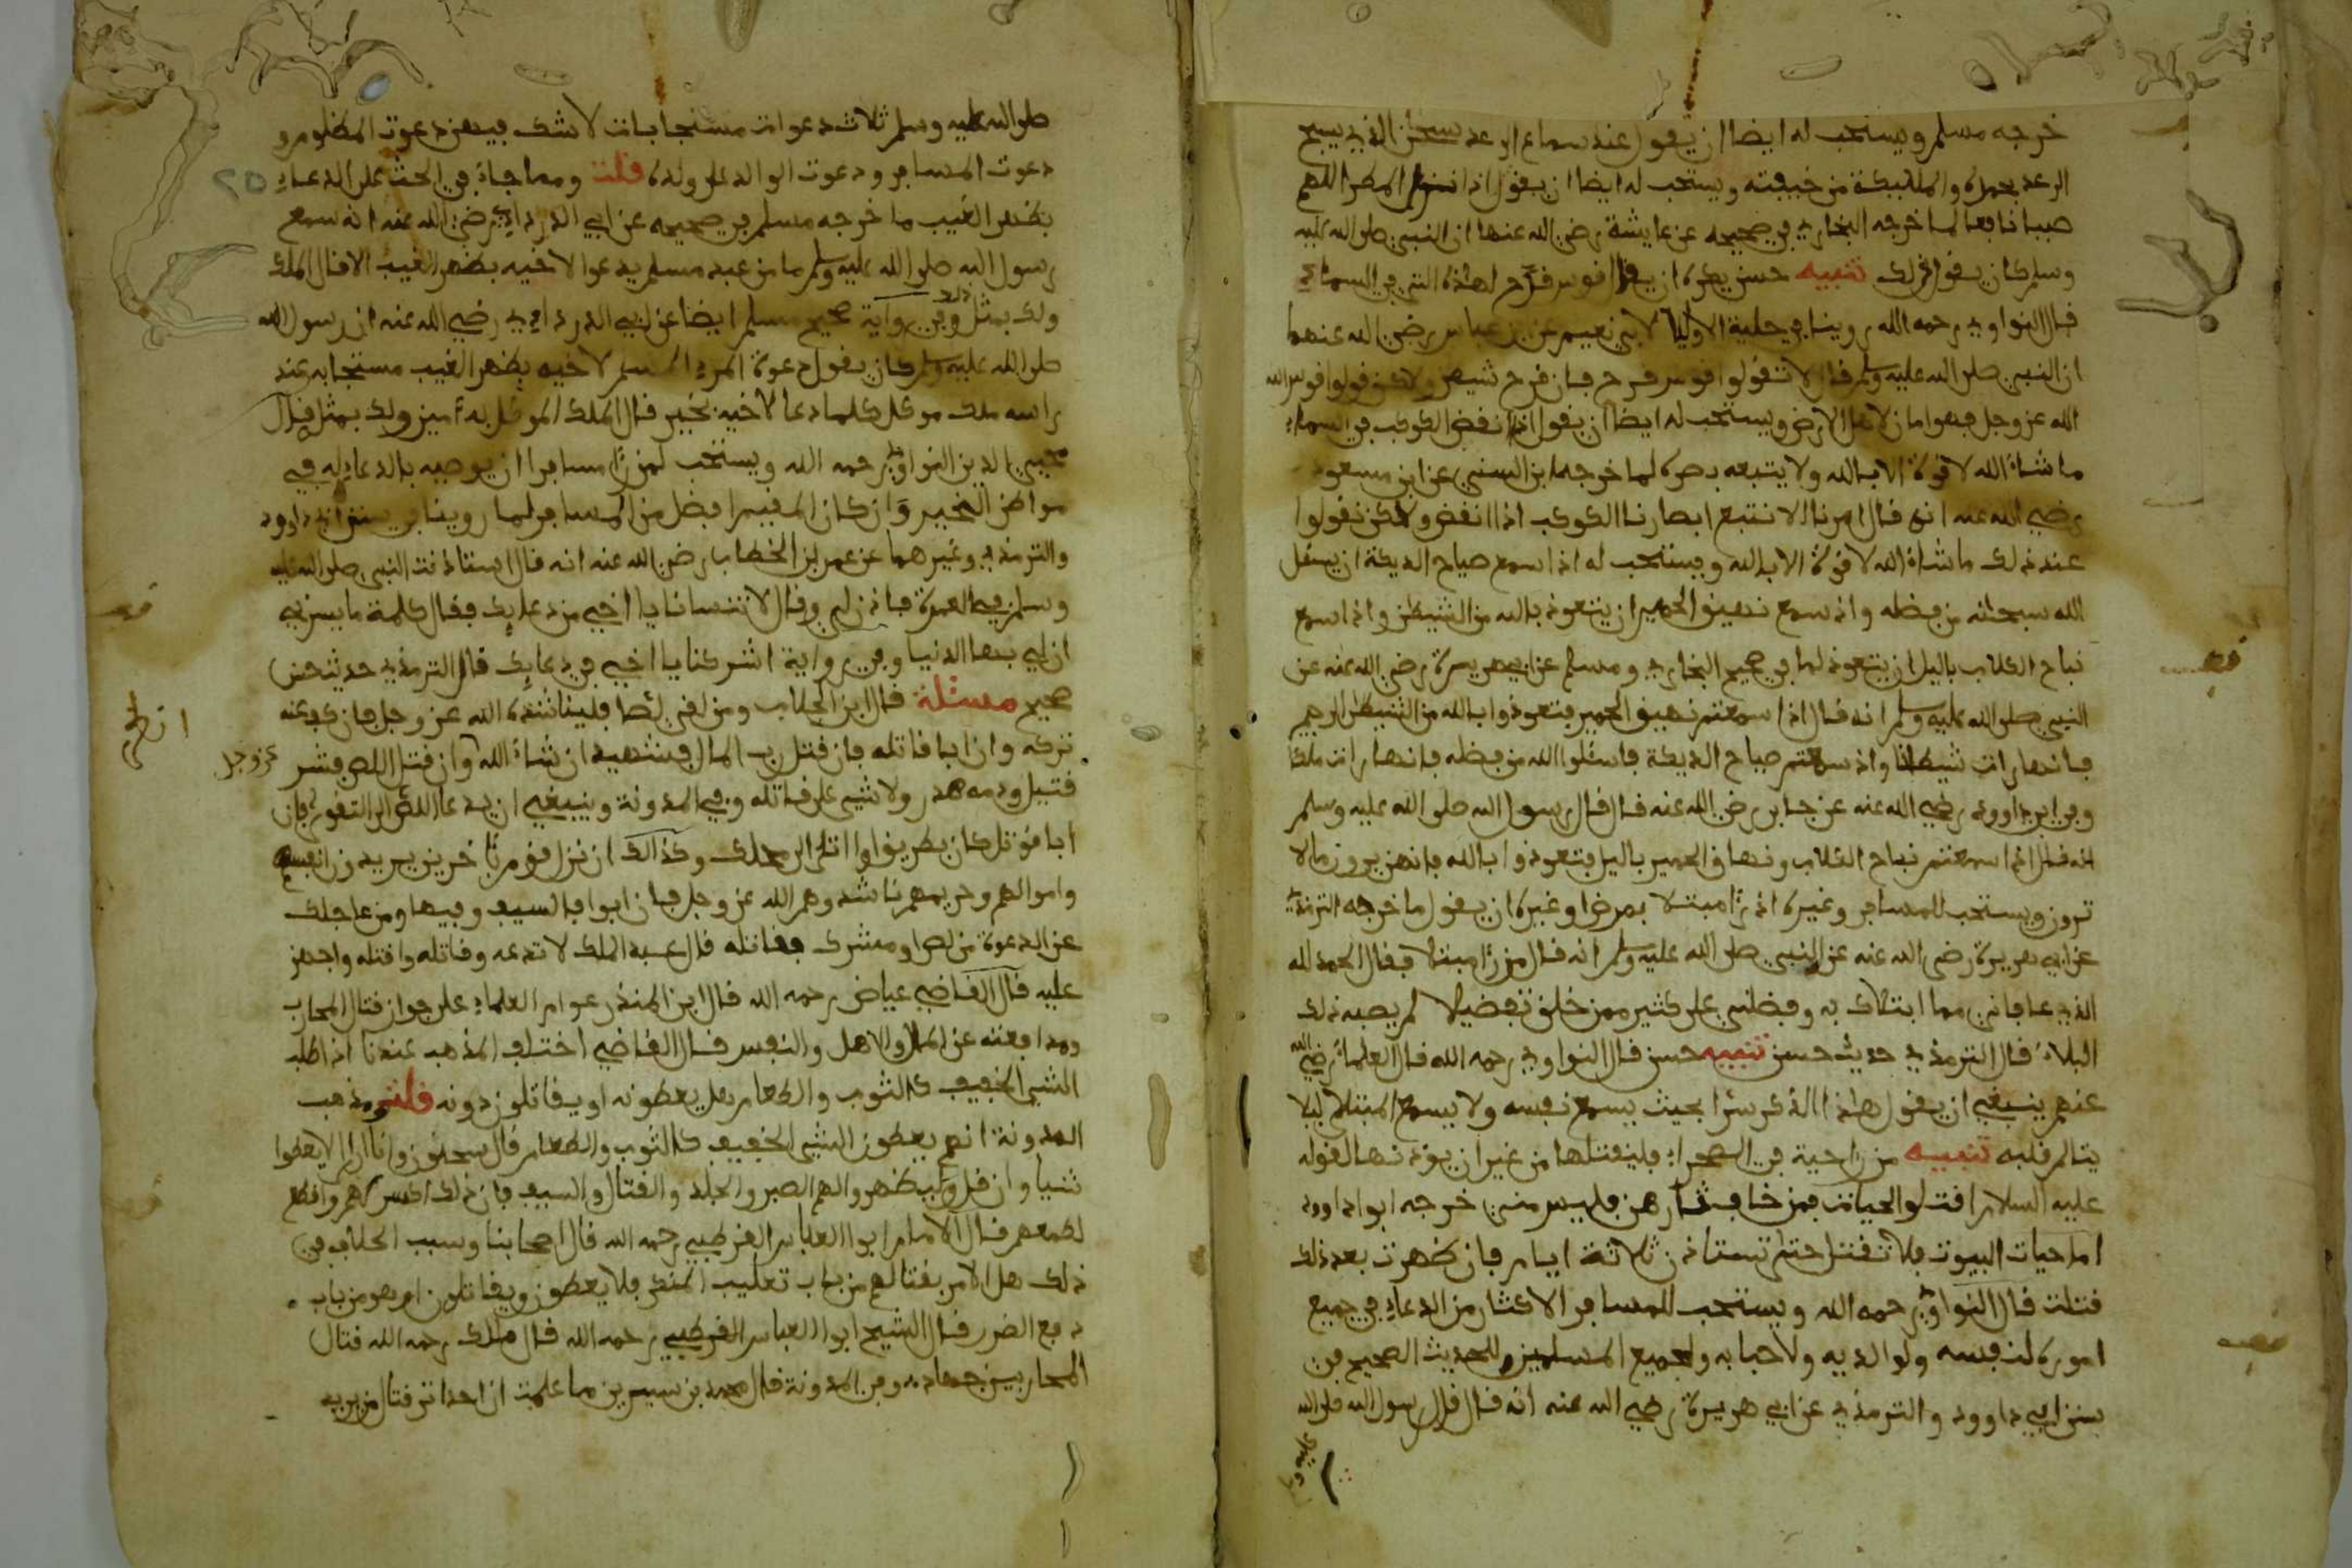 خرجه مسلم ويستحب له ايضا ان يقول عند سماع الرعد سبحن الذي يسبح
الرعد بحمده والمليكة من خيفته ويستحب له ايضا ان يقول اذا نزل المطر اللهم
صيبا نافعا لما خرجه البخاري في صحيحه عن عايشة رضي الله عنها ان النبي صلى الله عليه
وسلم كان يقول ذلك تنبيه حسن يكره ان يقول قوس قزح لهذه التي في السماء
قال النواوي رحمه الله روينا في حلية الاوليا لابي نعيم عن بن عباس رضي الله عنهما
ان النبي صلى الله عليه وسلم قال لا تقولوا قوس قزح فان قزح شيطن ولاكن قولوا قوس الله
الله عز وجل فهو امان لاهل الارض ويستحب له ايضا ان يقول اذا انقض الكوكب في السماء
ما شاء الله لا قوة الا بالله ولا يتبعه بصره لما خرجه ابن السني عن ابن مسعود
رضي الله عنه انه قال امرنا الا نتبع ابصارنا الكوكب اذا انقض ولاكن نقولوا
عند ذلك ما شاء الله لا قوة الا بالله ويستحب له اذا سمع صياح الديكة ان يسئل
الله سبحنه من فضله واذ سمع نهيق الحمير ان يتعوذ بالله من الشيطن واذا سمع
نباح الكلاب باليل ان يتعوذ لما في صحيح البخاري ومسلم عن ابي هريرة رضي الله عنه عن
النبي صلى الله عليه وسلم انه قال اذا سمعتم نهيق الحمير فتعوذوا بالله من الشيطن الرجيم
فانها رات شيطنا واذ سمعتم صياح الديكة فاسئلوا الله من فضله فانها رات ملكا
وفي ابي داوود رضي الله عنه عن جابر رضي الله عنه قال قال رسول الله صلى الله عليه وسلم
انه قال اذا سمعتم نباح الكلاب ونهاق الحمير باليل فتعوذوا بالله فانهن يرون ما لا
ترون ويستحب للمسافر وغيره اذ رءا مبتلا بمرض او غيره ان يقول ما خرجه الترمذي
عن ابي هريرة رضي الله عنه عن النبي صلى الله عليه وسلم انه قال من رءا مبتلا فقال الحمد لله
الذي عافاني مما ابتلاك به وفضلني على كثير ممن خلق تفضيلا لم يصبه ذلك
البلاء قال الترمذي حديث حسن تنبيه حسن قال النواوي رحمه الله قال العلماء رضي الله
عنهم ينبغي ان يقول هذا الذكر سرا بحيث يسمع نفسه ولا يسمع المبتلى ليلا
يتالم قلبه تنبيه من را حية في الصحراء فليقتلها من غير ان يؤذنها لقوله
عليه السلام اقتلوا الحيات فمن خاف ثارهن فليس مني خرجه ابوا داوود
اما حيات البيوت فلا تقتل حتى تستاذن ثلاثة ايام فان ظهرت بعد ذلك
قتلت قال النواوي رحمه الله ويستحب للمسافر الاكثار من الدعاء في جميع
اموره لنفسه ولوالديه ولاحبابه ولجميع المسلمين للحديث الصحيح في
سنن ابي داوود والترمذي عن ابي هريرة رضي الله عنه انه قال قال رسول الله صلى الله
عليه و
صلى الله عليه وسلم ثلاث دعوات مستجابات لا شك فيهن دعوت المظلوم و
دعوت المسافر ودعوت الوالد على ولده قلت ومما جاء في الحث على الدعاء
بظهر الغيب ما خرجه مسلم في صحيحه عن ابي الدرداء رضي الله عنه انه سمع
رسول الله صلى الله عليه وسلم ما من عبد مسلم يدعوا لاخيه بظهر الغيب الا قال الملك
ولك بمثل وفي رواية صحيح مسلم ايضا عن ابي الدرداء رضي الله عنه ان رسول الله
صلى الله عليه وسلم كان يقول دعوة المرء المسلم لاخيه بظهر الغيب مستجابه عند
راسه ملك موكل كلما دعا لاخيه بخير قال الملك الموكل به ءامين ولك بمثل قال
محيي الدين النواوي رحمه الله ويستحب لمن رءا مسافرا ان يوصيه بالدعاء له في
مواطن الخير وان كان المقيم افضل من المسافر لما روينا في سنن ابي داوود
والترمذي وغيرهما عن عمر بن الخطاب رضي الله عنه انه قال استاذنت النبي صلى الله عليه
وسلم في العمرة فاذن لي وقال لا تنسانا يا اخي من دعايك فقال كلمة ما يسرني
ان لي بها الدنيا وفي رواية اشركنا يا اخي في دعايك قال الترمذي حديث حسن
صحيح مسئلة قال ابن الجلاب ومن لقي لصا فليناشده الله عز وجل فان كف عنه
تركه وان ابا قاتله فان قتل رب المال فشهيد ان شاء الله وان قتل اللص فشر
عز وجل
قتيل ودمه هدر ولا شيء على قاتله وفي المدونة وينبغي ان يدعا اللص الى التقوى فان
ابا قوتل كان بطريق اوا اتلى الى محلك وكذالك ان نزل قوم بئاخرين يريدون انفسهم
واموالهم وحريمهم ناشدوهم الله عز وجل فان ابوا فالسيف وفيها ومن عاجلك
عن الدعوة من لص او مشرك فقاتله قال عبد الملك لا تدعه وقاتله واقتله واجهز
عليه قال القاضي عياض رحمه الله قال ابن المنذر عوام العلماء على جواز قتال المحارب
ومدافعته عن المال والاهل والنفس قال القاضي اختلف المذهب عندنا اذا طلب
الشيء الخفيف كالثوب والطعام هل يعطونه او يقاتلون دونه قلت ومذهب
المدونة انهم يعطون الشيء الخفيف كالثوب والطعام قال سحنون وانا ارى الا يعطوا
شيا وان قل وليظهروا لهم الصبر والجلد والقتال والسيف فان ذلك اكسر لهم واقطع
لطمعهم قال الامام ابوا العباس القرطبي رحمه الله قال اصحابنا وسبب الخلاف في
ذلك هل الامر بقتالهم من باب تغليب المنكر فلا يعطون ويقاتلون او هو من باب
دفع الضرر قال الشيخ ابوا العباس القرطبي رحمه الله قال ملك رحمه الله قتال
المحاربين جهاد وفي المدونة قال محمد بن سيرين ما علمت ان احدا ترك قتال من يريد